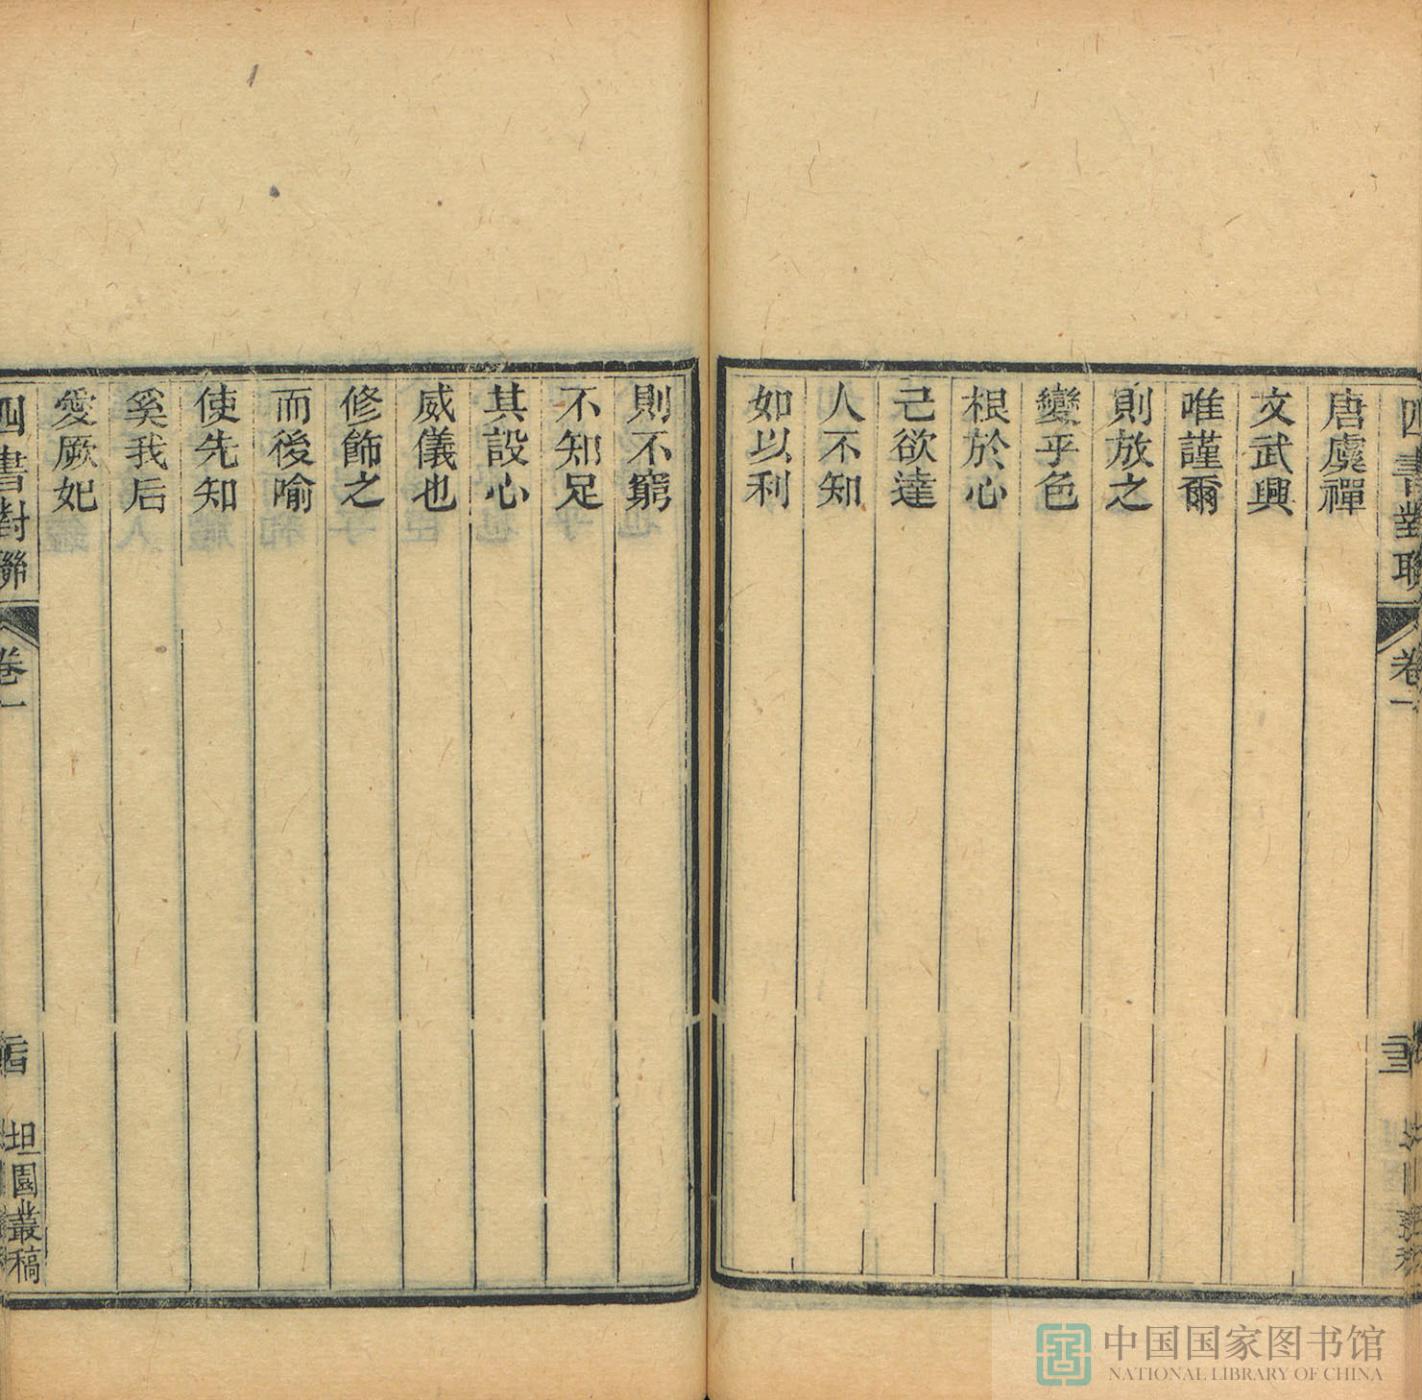 四書對聯 卷一
唐虞禪
文武興
唯謹爾
則放之
變乎色
根於心
己欲達
人不知
如以利
則不窮
不知足
其設心
威儀也
修飾之
而後喻
使先知
奚我后
愛厥妃
四書對聯 卷一 坦園叢稿
中国国家图书馆
NATIONAL LIBRARY OF CHINA